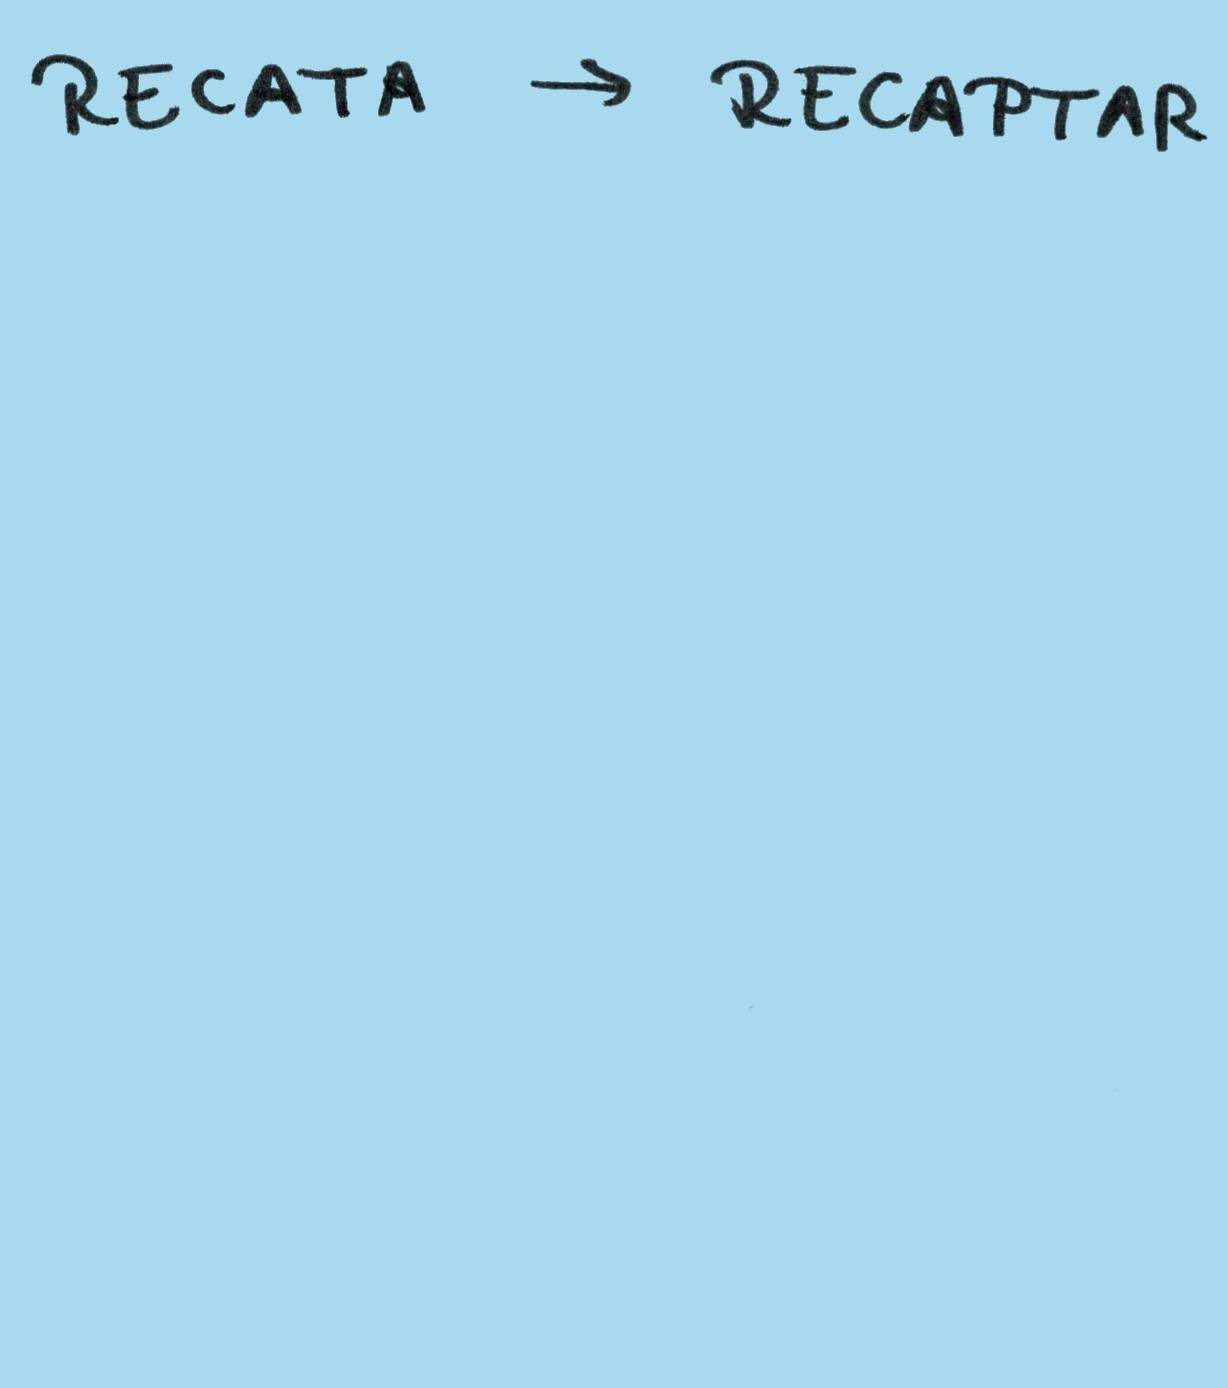 RECATA → RECAPTAR